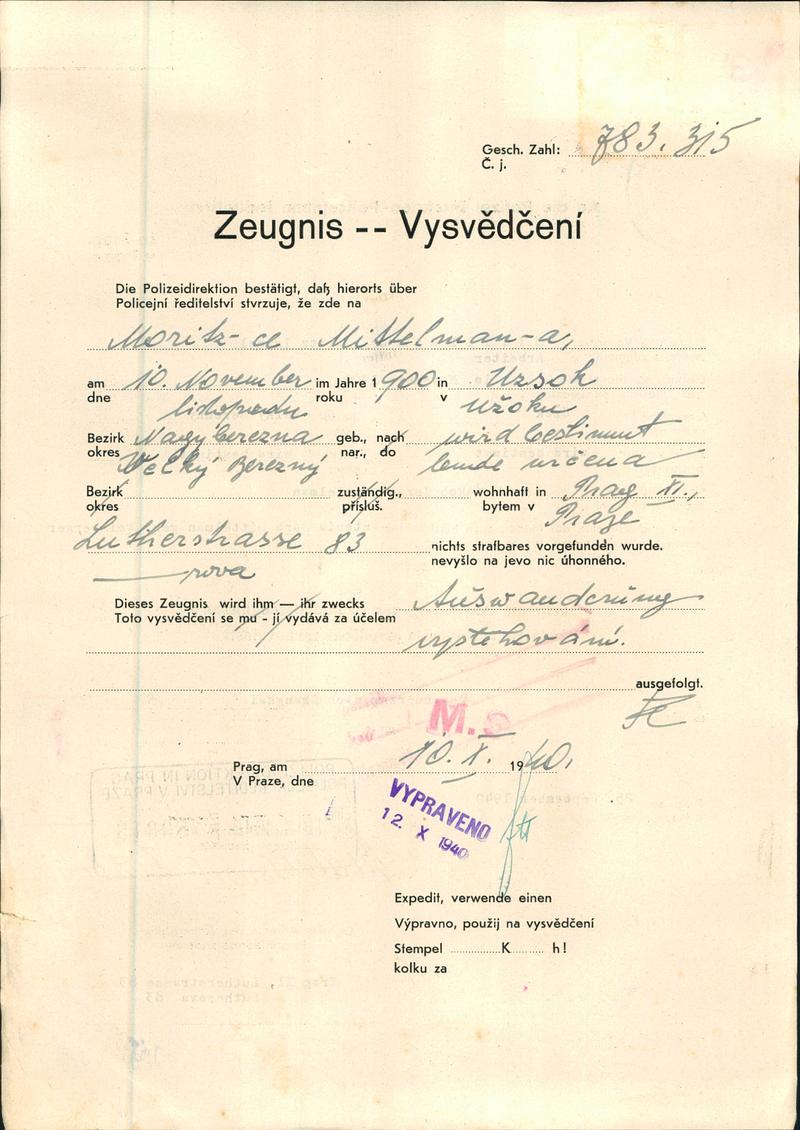 Gesch. Zahl: 783.315
Č. j.
Zeugnis -- Vysvědčení
Die Polizeidirektion bestätigt, daß hierorts über
Policejní ředitelství stvrzuje, že zde na
Moritz-ce Mittelman-a,
am 10. November im Jahre 1900 in Uzsok
dne listopadu roku v Užoku
Bezirk Nagyberezna geb., nach wird bestimmt
okres Velký Berezný nar., do bude určena
Bezirk zuständig., wohnhaft in Prag XI.,
okres přísluš. bytem v Praze
Lutherstrasse 83 nichts strafbares vorgefunden wurde.
rova nevyšlo na jevo nic úhonného.
Dieses Zeugnis wird ihm — ihr zwecks Auswanderung
Toto vysvědčení se mu - jí vydává za účelem
vystěhování.
ausgefolgt.
M.S
Prag, am 10. X. 1940.
V Praze, dne
VYPRAVENO
12. X 1940
Expedit, verwende einen
Výpravno, použij na vysvědčení
Stempel K h!
kolku za